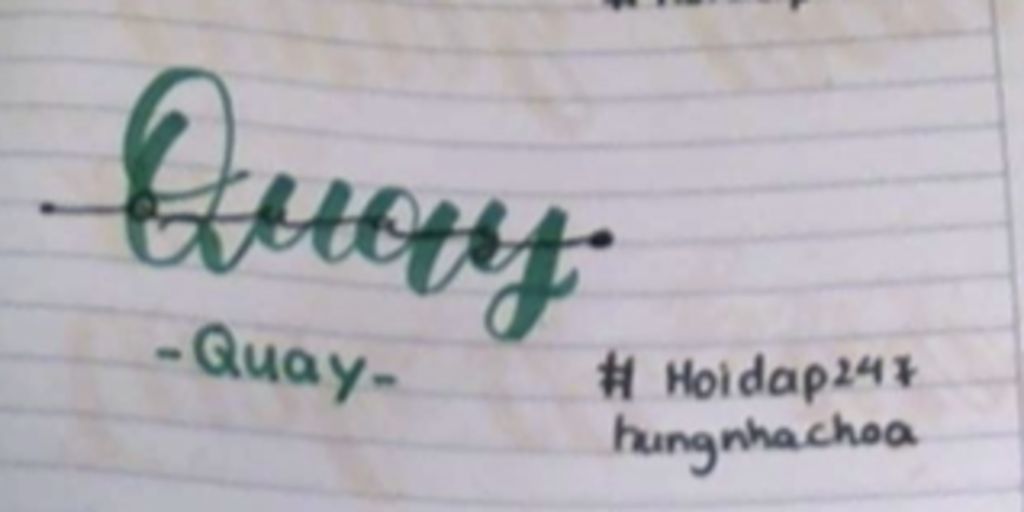 Quay
-Quay-
# Hoidap247
hungnhachoa